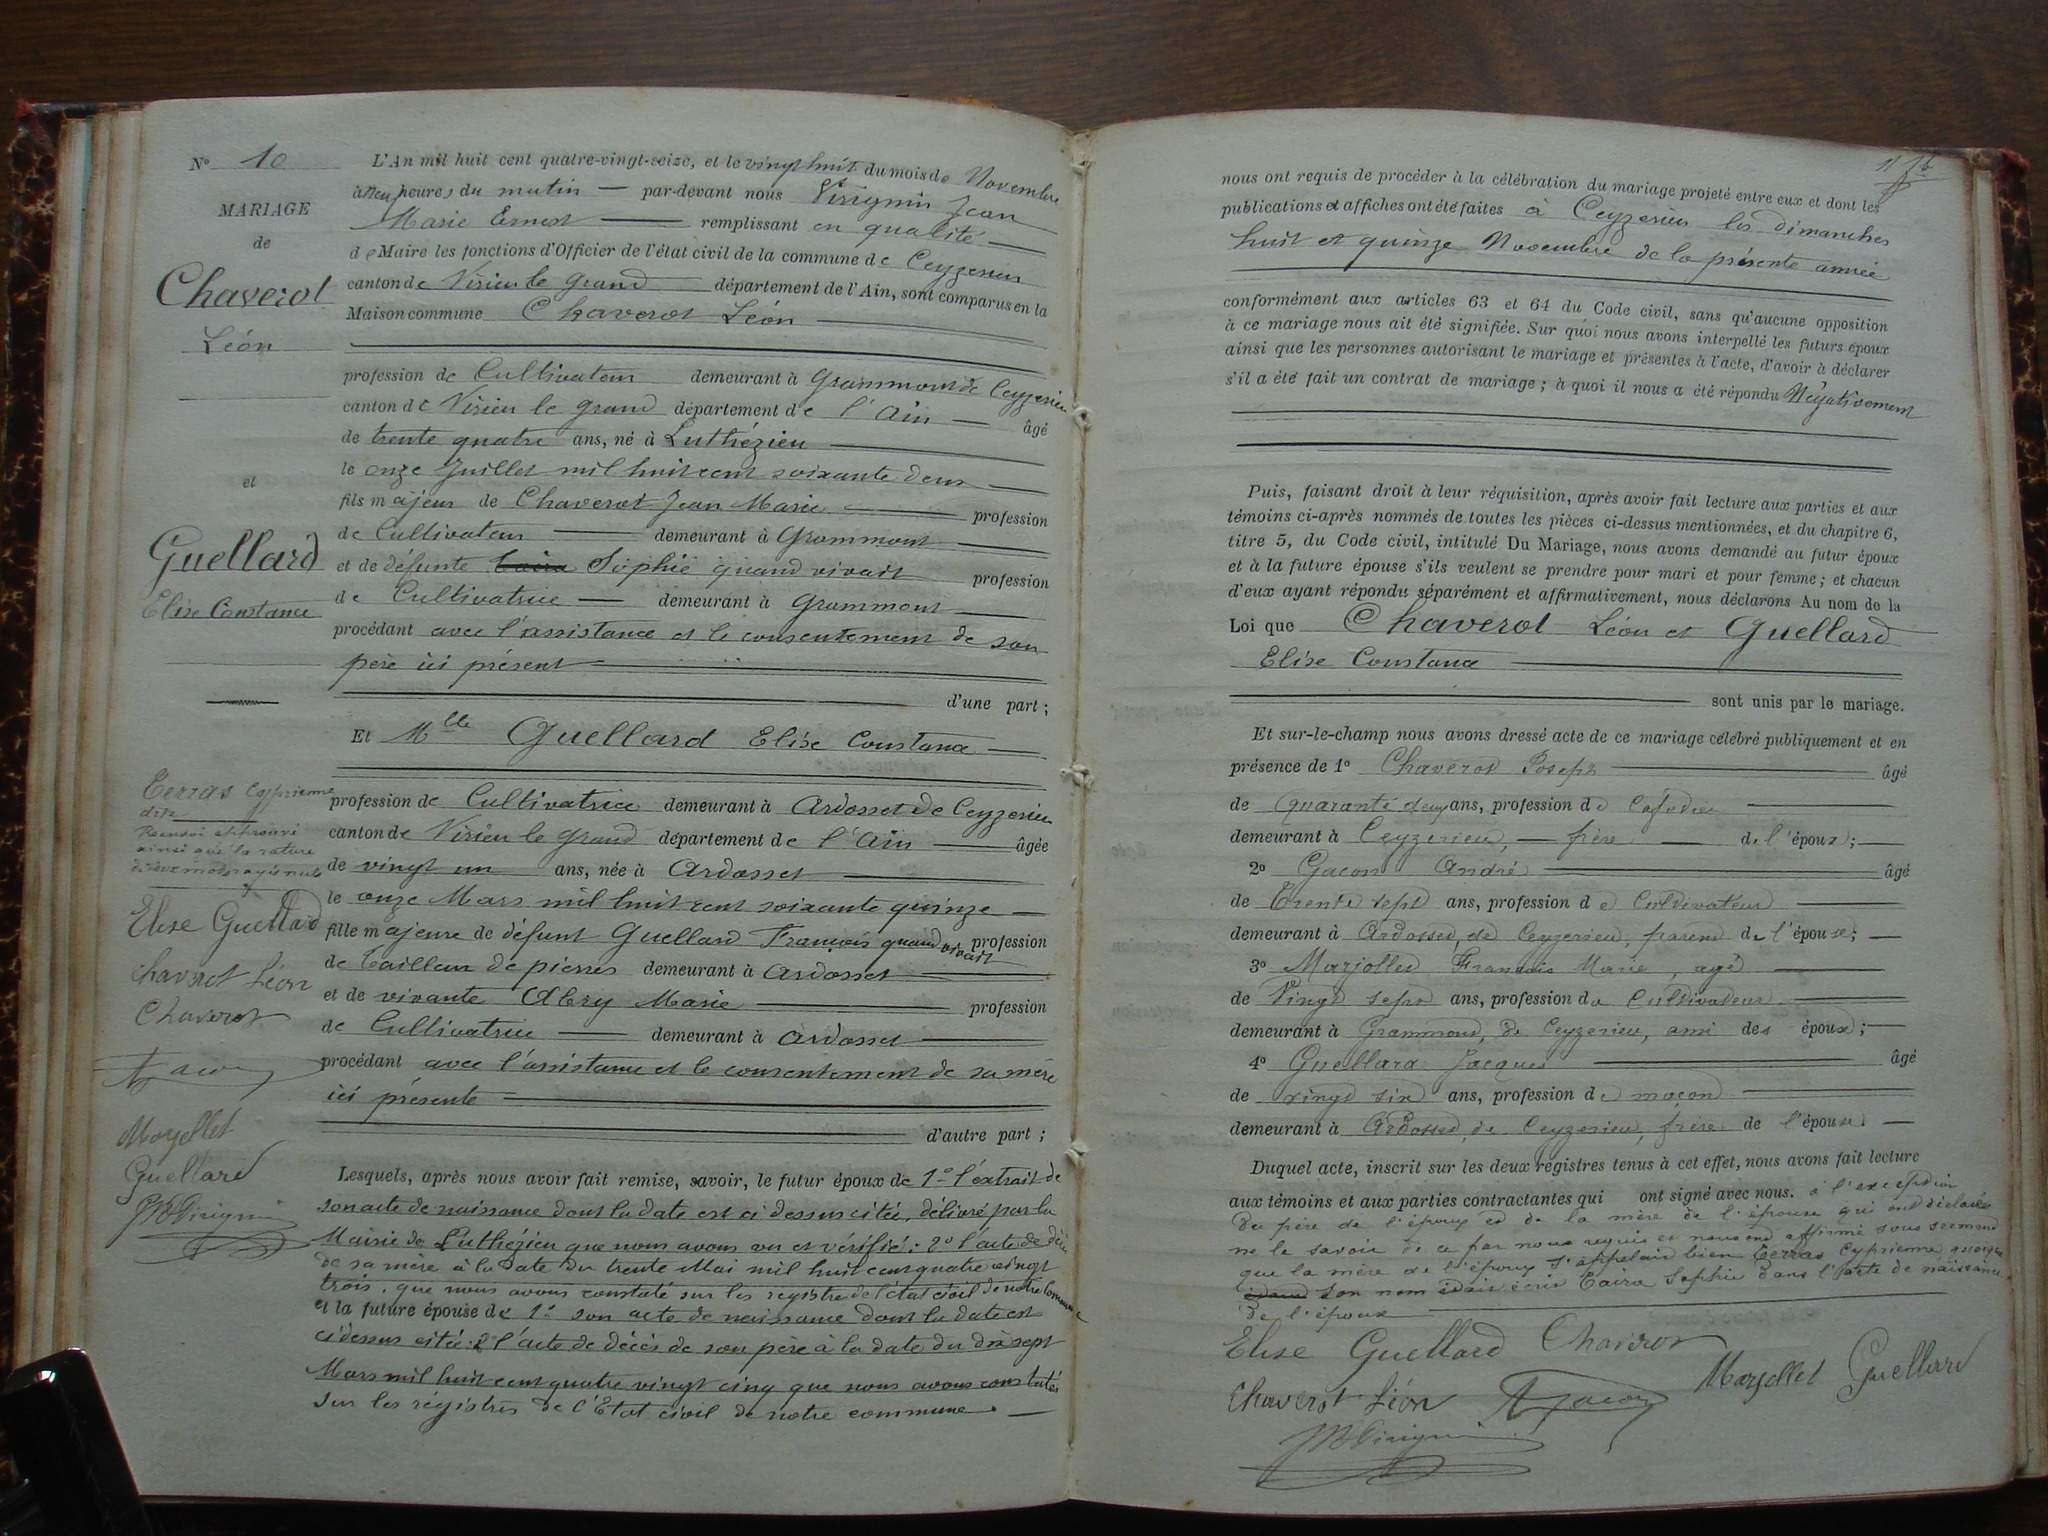 N° 10
MARIAGE
de
Chaverot
Léon
et
Guellard
Elise Constance
Terras Cyprienne
dite
Renvoi approuvé
ainsi que la rature
de deux mots rayés nuls
Elise Guellard
Chaverot Léon
Chaverot
Gacon
Marjollet
Guellard
L'An mil huit cent quatre-vingt-seize, et le vingt huit du mois de Novembre
à neuf heures du matin — par-devant nous Virignin Jean
Marie Ernest — remplissant en qualité —
de Maire les fonctions d'Officier de l'état civil de la commune de Ceyzerieu
canton de Virieu le grand — département de l'Ain, sont comparus en la
Maison commune Chaverot Léon —
profession de Cultivateur demeurant à Grammont de Ceyzerieu
canton de Virieu le grand département de l'Ain — âgé
de trente quatre ans, né à Luthézieu —
le onze Juillet mil huit cent soixante deux —
fils majeur de Chaverot Jean Marie — profession
de Cultivateur — demeurant à Grammont —
et de défunte Caira Sophie quand vivait profession
de Cultivatrice — demeurant à Grammont —
procédant avec l'assistance et le consentement de son
père ici présent —
d'une part ;
Et Mlle Guellard Elise Constance —
profession de Cultivatrice demeurant à Ardosset de Ceyzerieu
canton de Virieu le grand département de l'Ain — âgée
de vingt un ans, née à Ardosset —
le onze Mars mil huit cent soixante quinze —
fille majeure de défunt Guellard François quand vivait profession
de tailleur de pierres demeurant à Ardosset —
et de vivante Abry Marie — profession
de Cultivatrice — demeurant à Ardosset —
procédant avec l'assistance et le consentement de sa mère
ici présente —
d'autre part ;
Lesquels, après nous avoir fait remise, savoir, le futur époux de 1° l'extrait de
son acte de naissance dont la date est ci dessus citée, délivré par la
Mairie de Luthézieu que nous avons vu et vérifié ; 2° l'acte de décès
de sa mère à la date du trente Mai mil huit cent quatre vingt
trois, que nous avons constaté sur les registres de l'état civil de notre Commune
et la future épouse de 1° son acte de naissance dont la date est
ci dessus citée 2° l'acte de décès de son père à la date du dix sept
Mars mil huit cent quatre vingt cinq que nous avons constatés
sur les régistres de l'Etat civil de notre commune. —
nous ont requis de procéder à la célébration du mariage projeté entre eux et dont les
publications et affiches ont été faites à Ceyzerieu les dimanches
huit et quinze Novembre de la présente année
conformément aux articles 63 et 64 du Code civil, sans qu'aucune opposition
à ce mariage nous ait été signifiée. Sur quoi nous avons interpellé les futurs époux
ainsi que les personnes autorisant le mariage et présentes à l'acte, d'avoir à déclarer
s'il a été fait un contrat de mariage ; à quoi il nous a été répondu Négativement
Puis, faisant droit à leur réquisition, après avoir fait lecture aux parties et aux
témoins ci-après nommés de toutes les pièces ci-dessus mentionnées, et du chapitre 6,
titre 5, du Code civil, intitulé Du Mariage, nous avons demandé au futur époux
et à la future épouse s'ils veulent se prendre pour mari et pour femme ; et chacun
d'eux ayant répondu séparément et affirmativement, nous déclarons Au nom de la
Loi que Chaverot Léon et Guellard
Elise Constance —
sont unis par le mariage.
Et sur-le-champ nous avons dressé acte de ce mariage célébré publiquement et en
présence de 1° Chaverot Joseph — âgé
de quarante deux ans, profession de —
demeurant à Ceyzerieu, — frère — de l'époux ; —
2° Gacon André — âgé
de Trente sept ans, profession de Cultivateur —
demeurant à Ardosset, de Ceyzerieu, parent de l'épouse ; —
3° Marjollet François Marie, agé —
de Vingt sept ans, profession de Cultivateur —
demeurant à Grammont, de Ceyzerieu, ami des époux ; —
4° Guellard Jacques — âgé
de vingt six ans, profession de maçon —
demeurant à Ardosset, de Ceyzerieu, frère de l'épouse —
Duquel acte, inscrit sur les deux registres tenus à cet effet, nous avons fait lecture
aux témoins et aux parties contractantes qui ont signé avec nous. à l'exception
du père de l'époux et de la mère de l'épouse qui ont déclaré
ne le savoir de ce par nous requis et nous ont affirmé sous serment
que la mère de l'époux s'appelait bien Terras Cyprienne quoique
son nom était écrit Caira Sophie dans l'acte de naissance
de l'époux —
Elise Guellard Chaverot
Chaverot Léon Gacon Marjollet Guellard